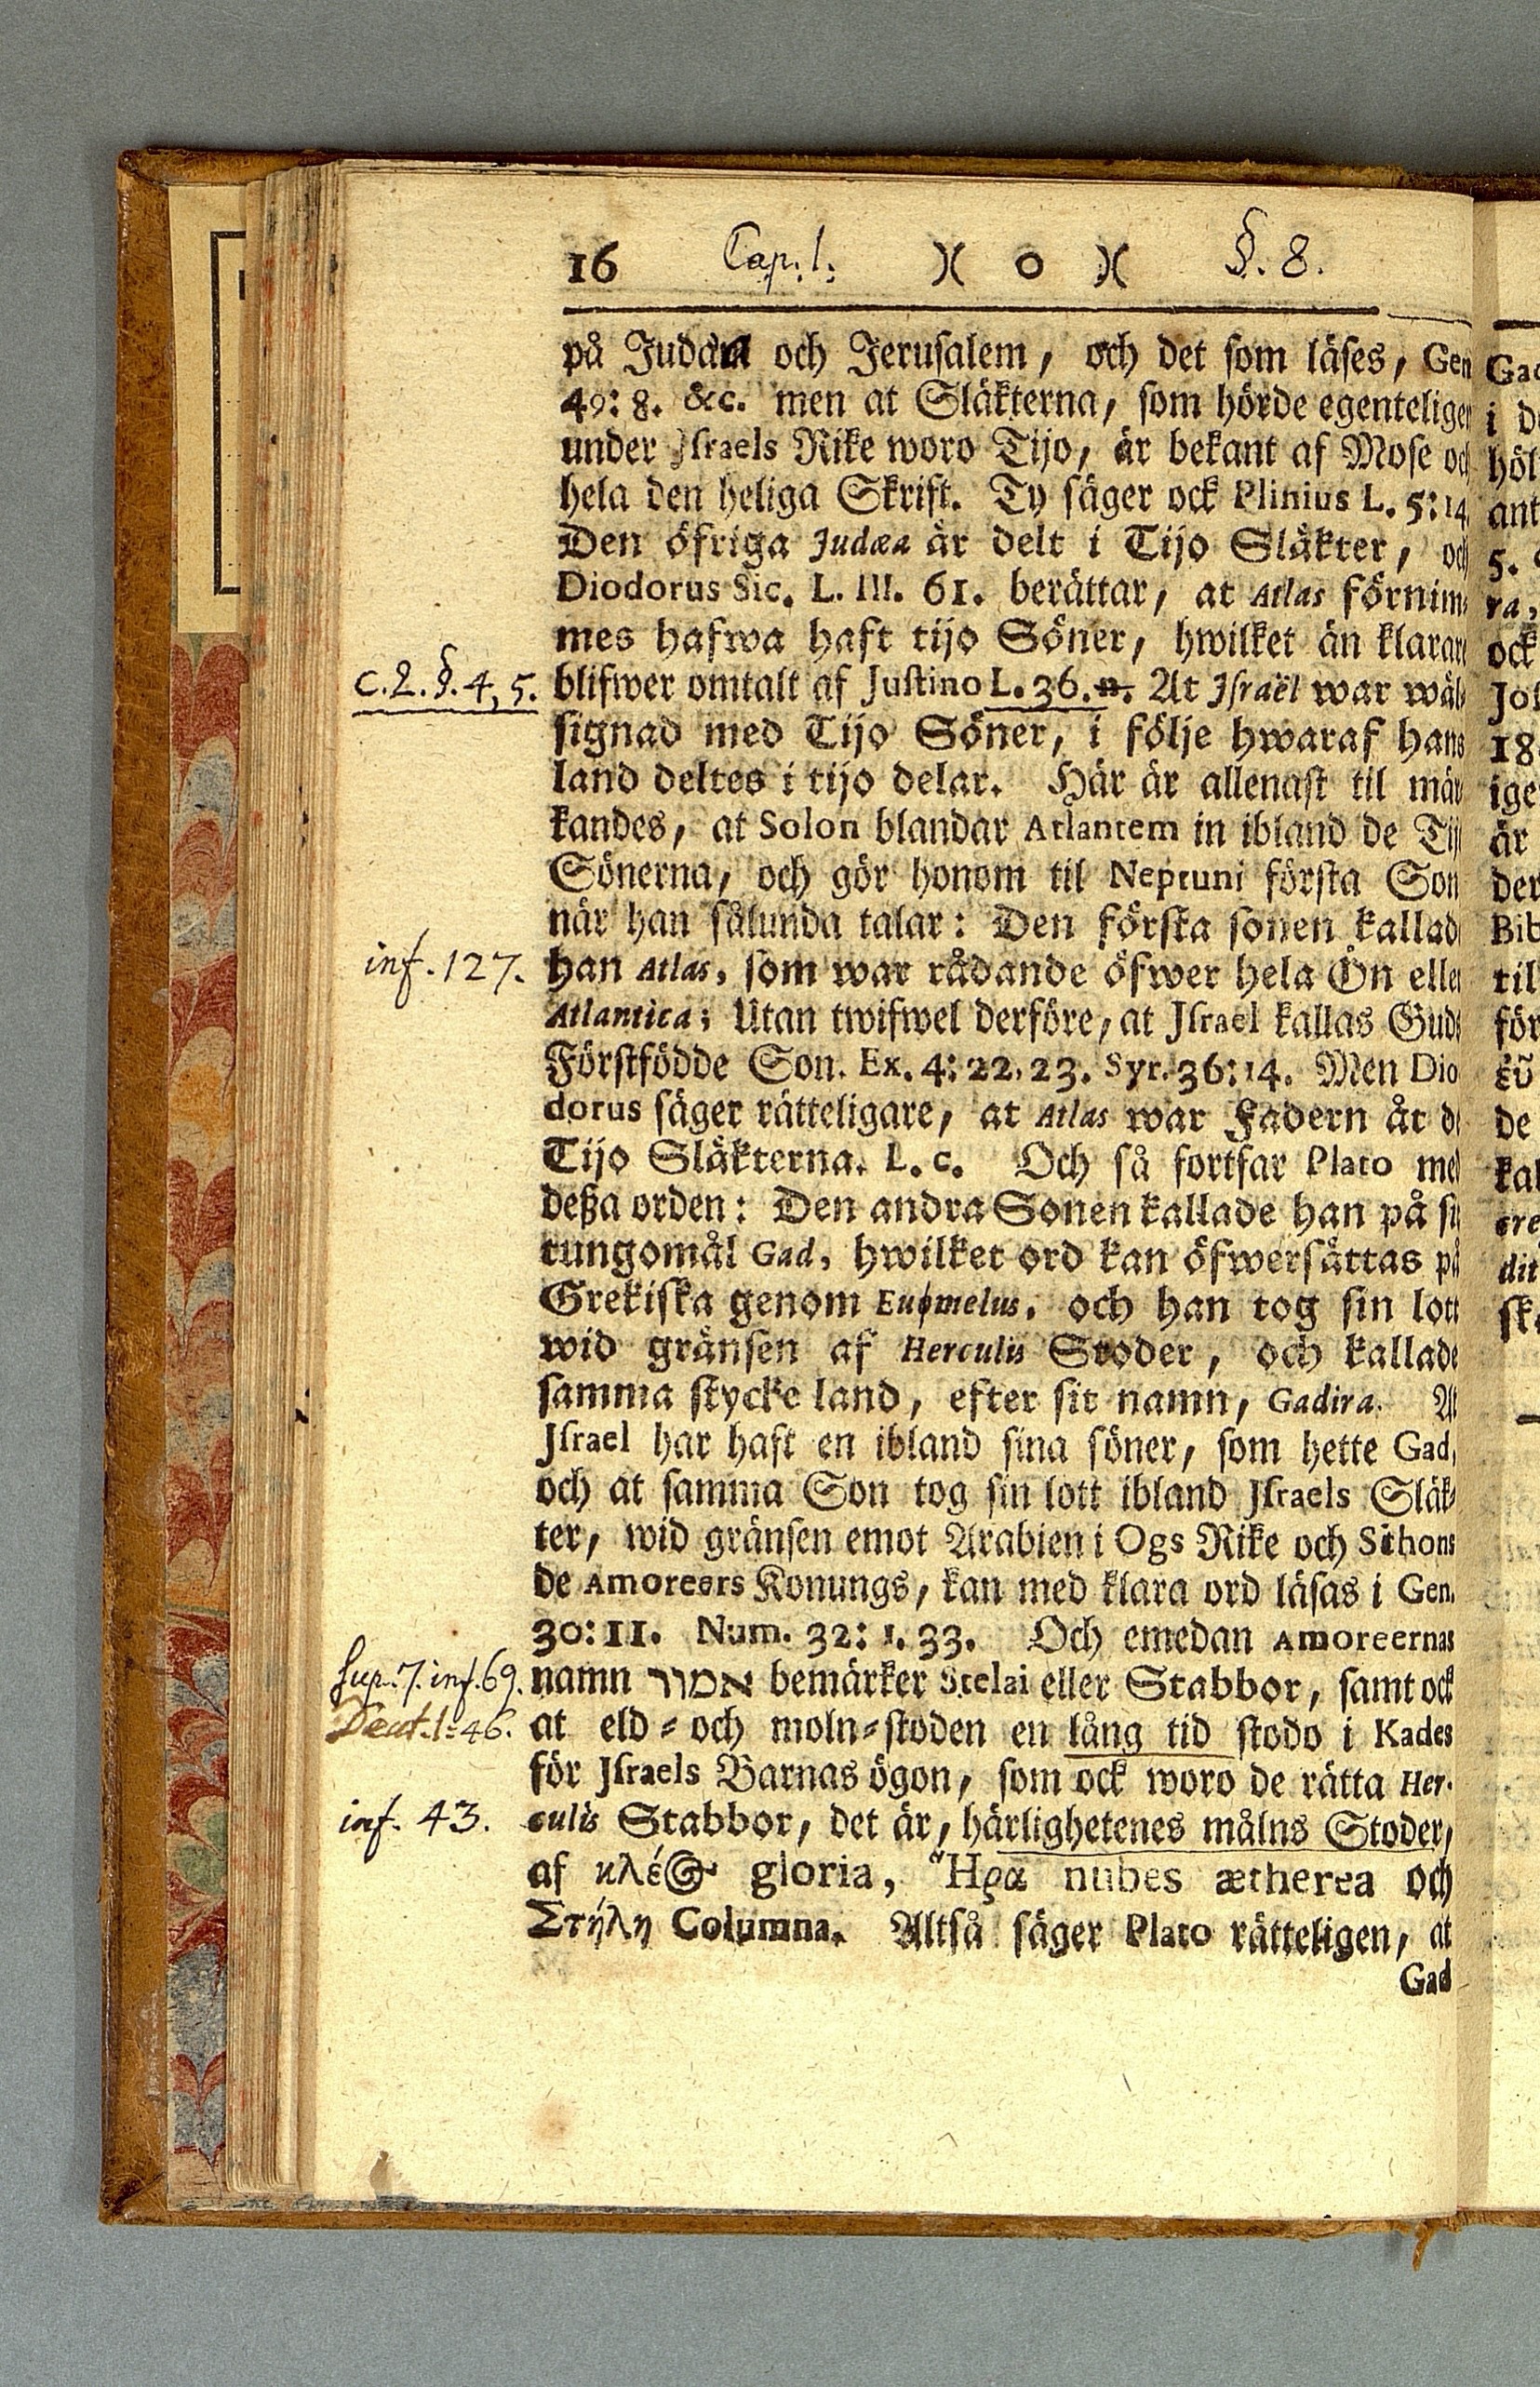 16 Cap. 1. )( o )( §. 8.
på Judam och Jerusalem, och det som läses, Gen
49: 8. &c. men at Släkterna, som hörde egentelige
under Israels Rike woro Tijo, är bekant af Mose och
hela den heliga Skrift. Ty säger ock Plinius L. 5:14
Den öfriga Judæa är delt i Tijo Släkter, och
Diodorus Sic. L. III. 61. berättar, at Atlas förnim-
mes hafwa haft tijo Söner, hwilket än klarare
c. 2. §. 4, 5. blifwer omtalt af Justino L. 36. n. At Israël war wäl-
signad med Tijo Söner, i följe hwaraf hans
land deltes i tijo delar. Här är allenast til mär-
kandes, at Solon blandar Atlantem in ibland de Tijo
Sönerna, och gör honom til Neptuni första Son
när han sålunda talar: Den första sonen kallade
inf. 127. han Atlas, som war rådande öfwer hela Ön eller
Atlantica; Utan twifwel derföre, at Israel kallas Guds
Förstfödde Son. Ex. 4: 22, 23. Syr. 36: 14. Men Dio
dorus säger rätteligare, at Atlas war Fadern åt de
Tijo Släkterna. L. c. Och så fortfar Plato med
deßa orden: Den andra Sonen kallade han på sit
tungomål Gad, hwilket ord kan öfwersättas på
Grekiska genom Eupmelus, och han tog sin lott
wid gränsen af Herculis Stoder, och kallade
samma stycke land, efter sit namn, Gadira. At
Israel har haft en ibland sina söner, som hette Gad,
och at samma Son tog sin lott ibland Israels Släk-
ter, wid gränsen emot Arabien i Ogs Rike och Sihons
de Amoreers Konungs, kan med klara ord läsas i Gen.
30: 11. Num. 32: 1. 33. Och emedan Amoreernas
sup. 7. inf. 69. namn אמור bemärker Stelai eller Stabbor, samt ock
Deut. 1: 46. at eld- och moln-stoden en lång tid stodo i Kades
för Israels Barnas ögon, som ock woro de rätta Her-
inf. 43. culis Stabbor, det är, härlighetenes målns Stoder,
af κλέος gloria, Ἥρα nubes ætherea och
Στήλη Columna. Altså säger Plato rätteligen, at
Gad